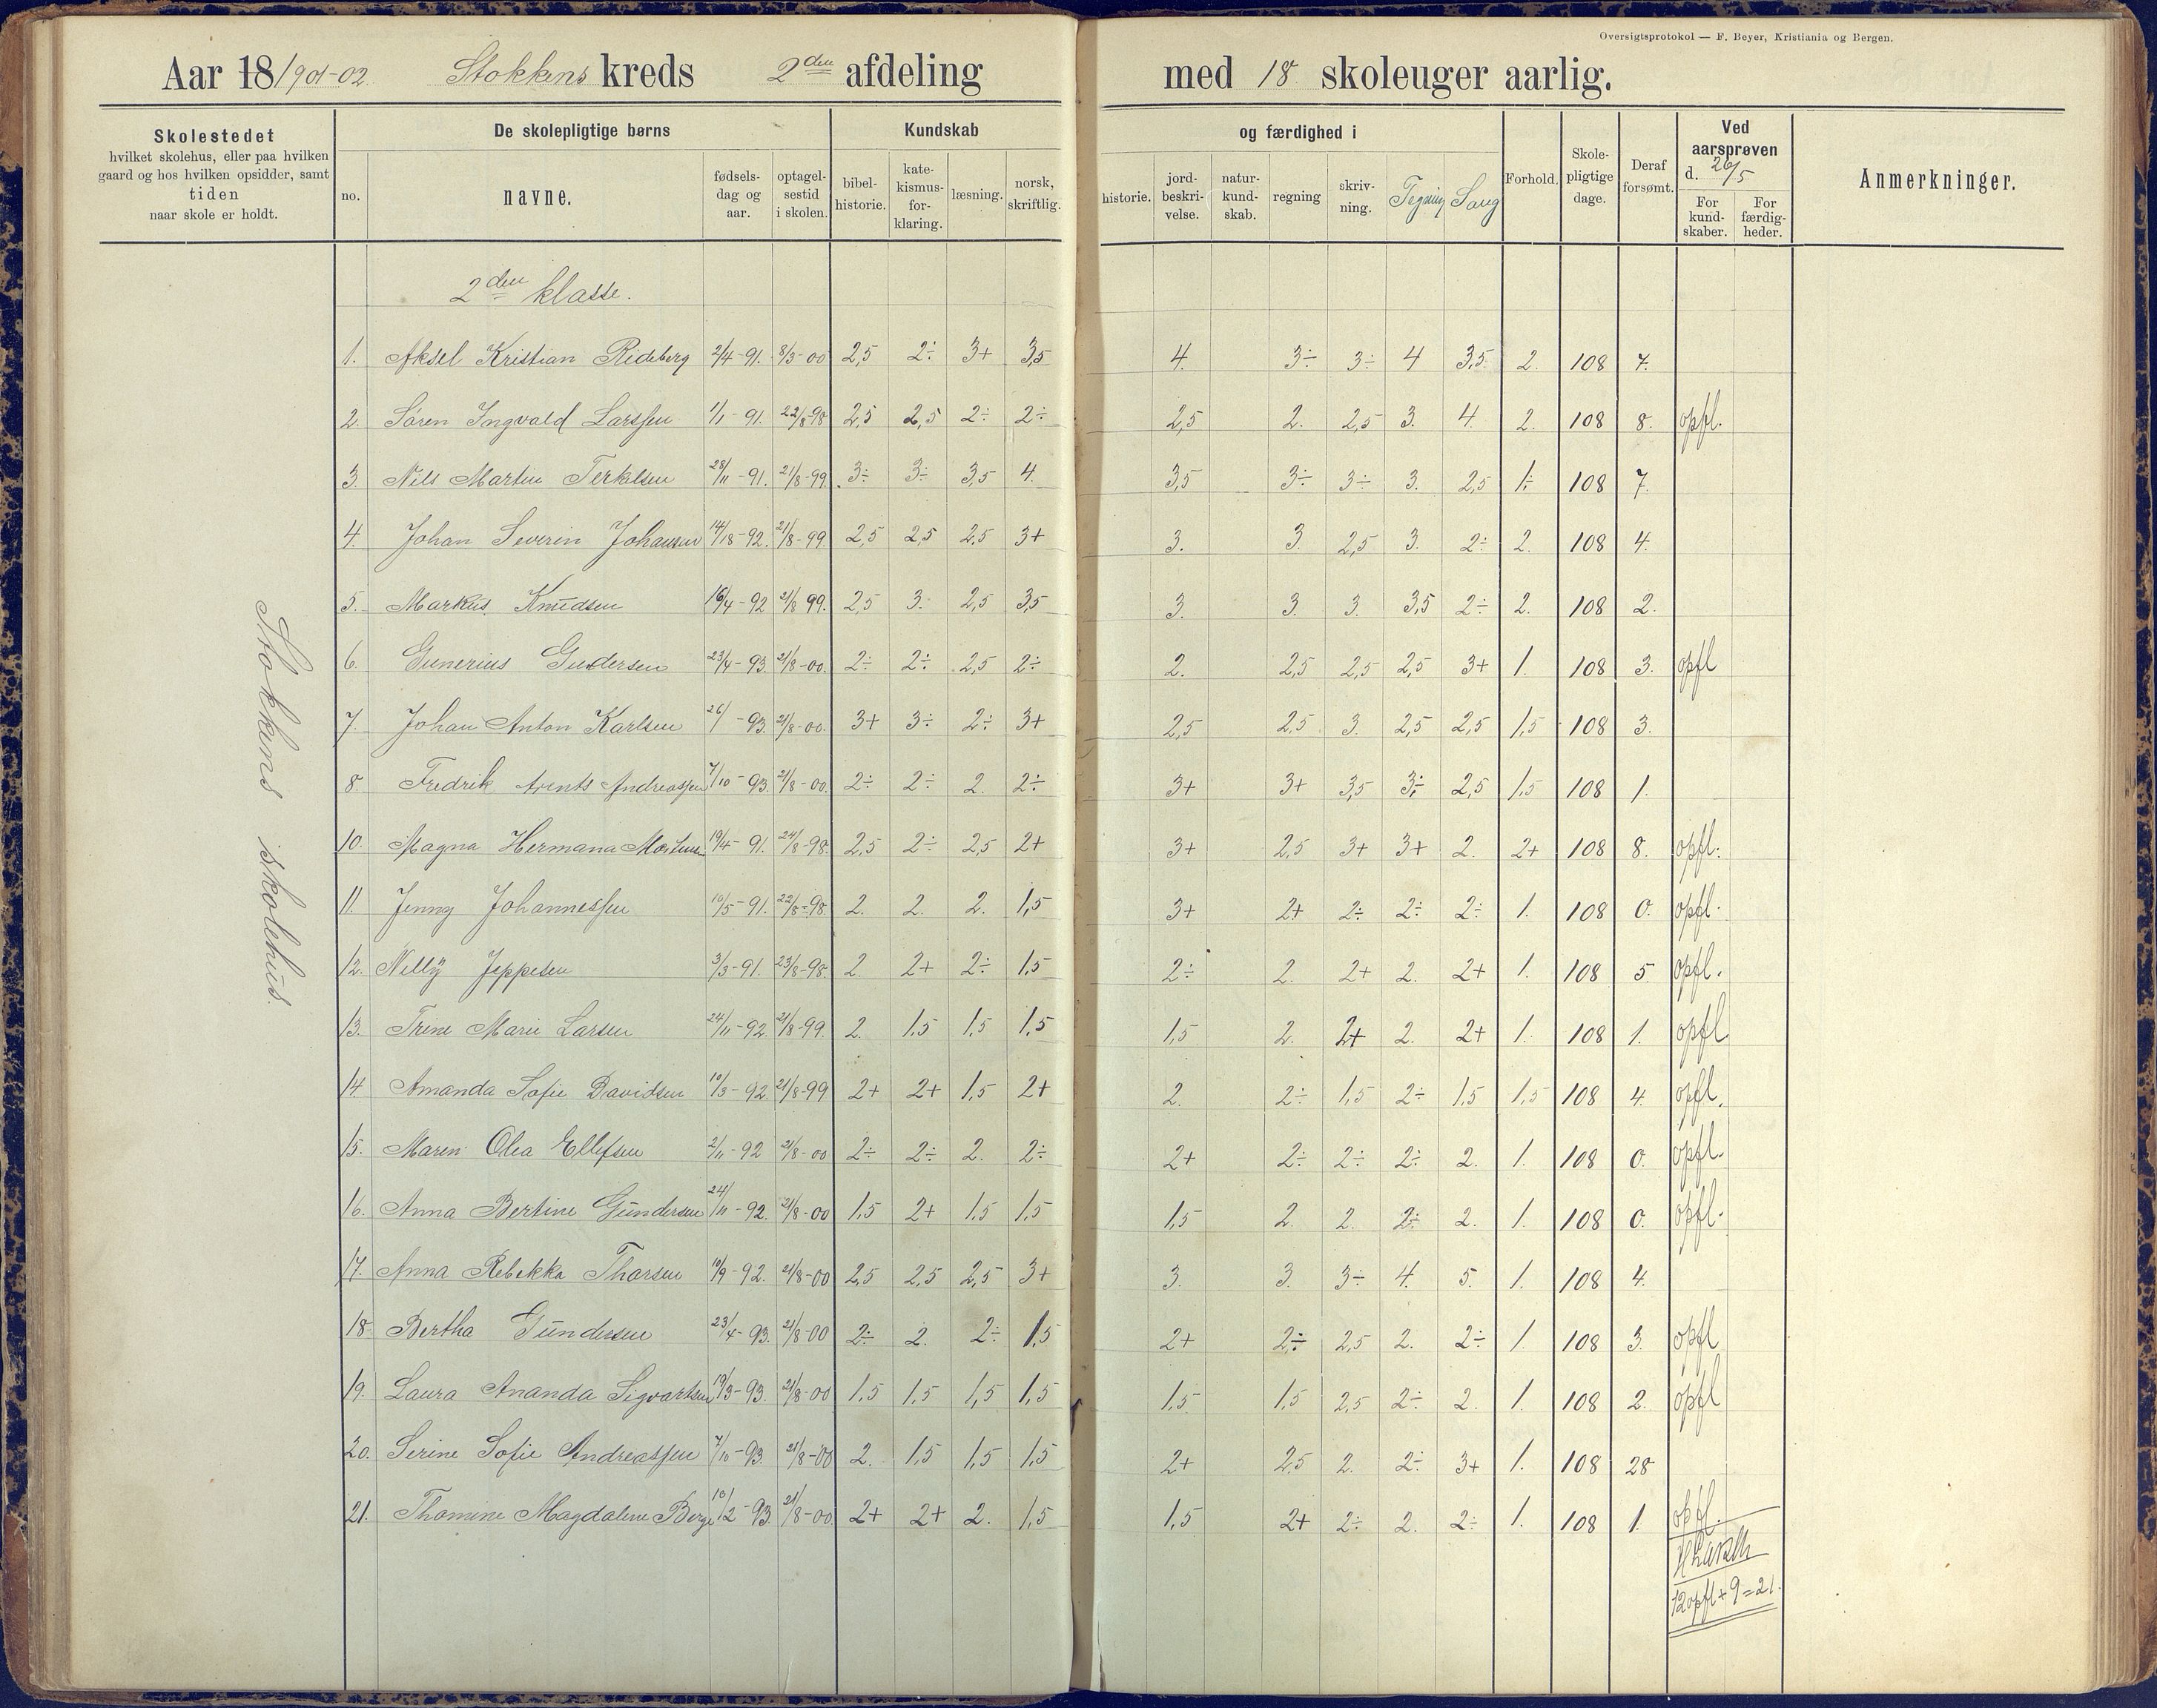 Oversigtsprotokol — F. Beyer, Kristiania og Bergen.
Aar 18/901-02. Stokkens kreds 2den afdeling med 18 skoleuger aarlig.
Skolestedet
hvilket skolehus, eller paa hvilken
gaard og hos hvilken opsidder, samt
tiden
naar skole er holdt.
De skolepligtige børns
no.
navne.
fødsels-
dag og
aar.
optagel-
sestid
i skolen.
Kundskab
bibel-
historie.
kate-
kismus-
for-
klaring.
læsning.
norsk,
skriftlig.
og færdighed i
historie.
jord-
beskri-
velse.
natur-
kund-
skab.
regning
skriv-
ning.
Tegning
Sang
Forhold.
Skole-
pligtige
dage.
Deraf
forsømt.
Ved
aarsprøven
d. 26/5
For
kund-
skaber.
For
færdig-
heder.
Anmerkninger.
Stokkens skolehus.
2den klasse.
1. Aksel Kristian Rideberg 2/4-91. 8/3-00 2,5 2÷ 3+ 3,5 4. 3÷ 3÷ 4 3,5. 2. 108 7.
2. Søren Ingvald Larssen 1/1-91. 22/8-98 2,5 2,5 2÷ 2÷ 2,5 2. 2,5 3. 4. 2. 108 8. opfl.
3. Nils Martin Terkelsen 28/11-91. 21/8-99. 3÷ 3÷ 3,5 4. 3,5 3÷ 3÷ 3. 2,5 1÷ 108 7.
4. Johan Severin Johansen 14/18-92. 21/8-99. 2,5 2,5 2,5 3+ 3. 3. 2,5 3. 2÷ 2. 108 4.
5. Markus Knudsen 16/4-92 21/8 99. 2,5 3. 2,5 3,5 3. 3. 3. 3,5 2÷ 2. 108 2.
6. Gunerius Gudersen 23/4-93. 21/8-00. 2÷ 2÷ 2,5 2÷ 2. 2,5 2,5 2,5 3+ 1. 108 3. opfl
7. Johan Anton Karlsen 26/ -93. 21/8-00. 3+ 3÷ 2÷ 3+ 2,5 2,5 3. 2,5 2,5 1,5 108 3.
8. Fredrik Arents Andreassen 7/10-93. 21/8-00. 2÷ 2÷ 2. 2÷ 3+ 3+ 3,5 3÷ 2,5 1,5 108 1.
10. Magna Hermana Mortensen 19/4-91. 24/8-98. 2,5 2÷ 2,5 2+ 3+ 2,5 3+ 3+ 2. 2+ 108 8. opfl.
11. Jenny Johannessen 10/5-91. 22/8-98. 2. 2. 2. 1,5 3+ 2+ 2÷ 2÷ 2÷ 1. 108 0. opfl.
12. Nelly Jeppesen 3/3-91. 23/8-98. 2 2+ 2÷ 1,5 2÷ 2. 2+ 2. 2+ 1. 108 5. opfl.
13. Trine Marie Larsen 24/11-92. 21/8-99. 2. 1,5 1,5 1,5 1,5 2. 2+ 2. 2+ 1. 108 1. opfl
14 Amanda Sofie Davidsen 10/3-92. 21/8-99 2+ 2+ 1,5 2+ 2. 2÷ 1,5 2÷ 1,5 1,5 108 4. opfl.
15. Maren Olea Ellefsen 2/11-92 21/8-00 2÷ 2÷ 2. 2÷ 2+ 2÷ 2÷ 2÷ 2. 1. 108 0. opfl.
16. Anna Bertine Gundersen 24/11-92. 21/8-00 1,5 2+ 1,5 1,5 1,5 2. 2. 2÷ 2. 1. 108 0. opfl.
17. Anna Rebekka Thorsen 10/9-92. 21/8-00 2,5 2,5 2,5 3+ 3. 3. 3÷ 4. 5. 1. 108 4.
18. Bertha Gundersen 23/4-93. 21/8-00 2÷ 2. 2÷ 1,5 2+ 2÷ 2,5 2. 2÷ 1. 108 3. opfl
19. Laura Ananda Sigvartsen 19/3-93. 21/8-00 1,5 1,5 1,5 1,5 1,5 1,5 2,5 2÷ 2. 1. 108 2. opfl
20. Serine Sofie Andreassen 7/10-93. 21/8-00 2. 1,5 1,5 1,5 2+ 2,5 2. 2÷ 3+ 1. 108 28
21. Thomine Magdalene Berge 10/2-93. 21/8-00 2+ 2+ 2. 1,5 1,5 2+ 2÷ 2. 2÷ 1. 108 1. opfl.
12 opfl + 9 = 21.